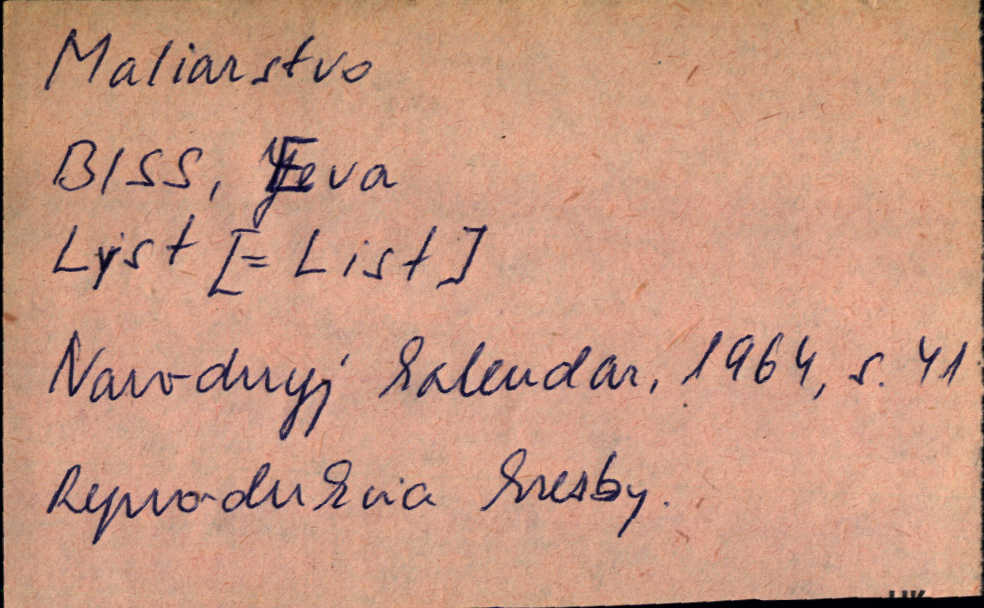 Maliarstvo
BISS, Eva
Lyst [= List]
Narodnyj kalendar, 1964, s. 41
Reprodukcia kresby.